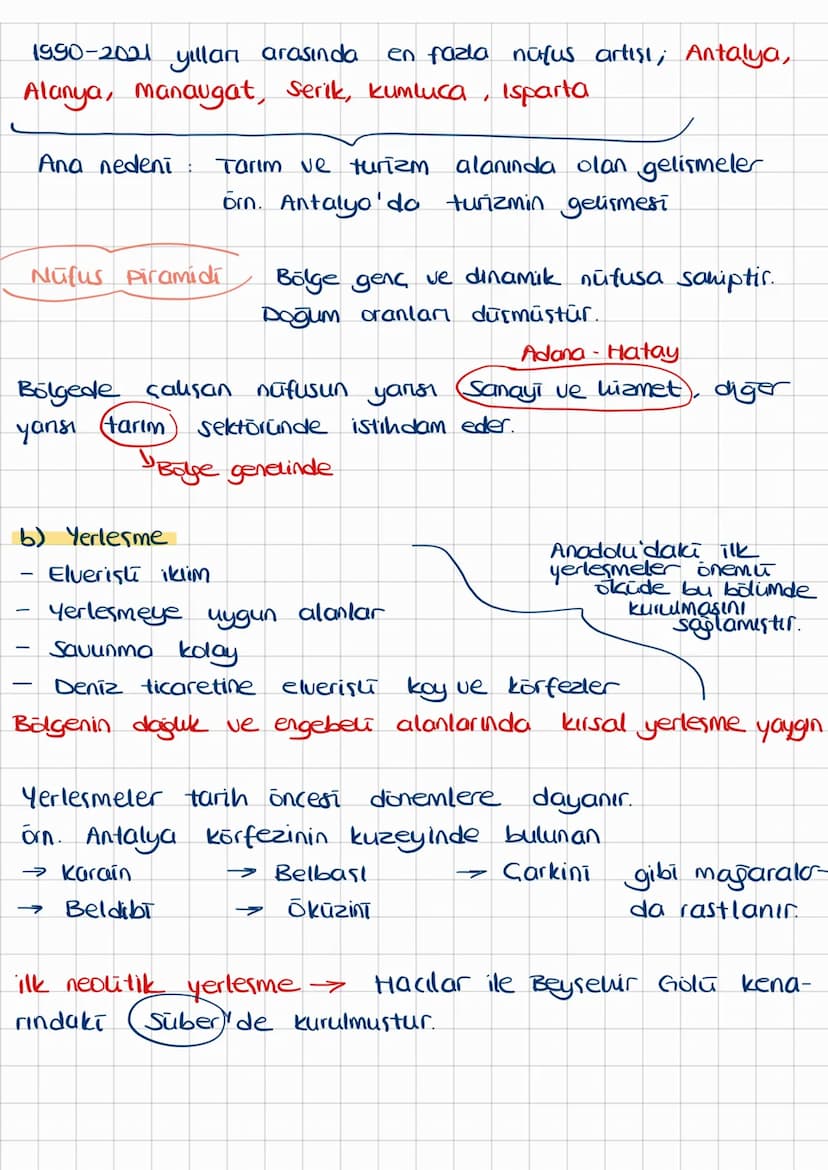 1990-2021 yılları arasında en fazla nüfus artışı; Antalya,
Alanya, Manavgat, Serik, Kumluca, Isparta
Ana nedeni : Tarım ve turizm alanında olan gelişmeler
örn. Antalya'da turizmin gelişmesi
Nüfus Piramidi
Bölge genç ve dinamik nüfusa sahiptir.
Doğum oranları düşmüştür.
Adana - Hatay
Bölgede çalışan nüfusun yarısı sanayi ve hizmet, diğer
yarısı tarım sektöründe istihdam eder.
Bölge genelinde
b) Yerleşme
- Elverişli iklim
- Yerleşmeye uygun alanlar
- Savunma kolay
- Deniz ticaretine elverişli koy ve körfezler
Anadolu'daki ilk
yerleşmeler önemli
ölçüde bu bölümde
kurulmasını
sağlamıştır.
Bölgenin dağlık ve engebeli alanlarında kırsal yerleşme yaygın
Yerleşmeler tarih öncesi dönemlere dayanır.
örn. Antalya körfezinin kuzeyinde bulunan
→ Karain → Belbaşı → Çarkini gibi mağaralar-
→ Beldibi → Öküzini da rastlanır.
ilk neolitik yerleşme → Hacılar ile Beyşehir Gölü kena-
rındaki Süber'de kurulmuştur.